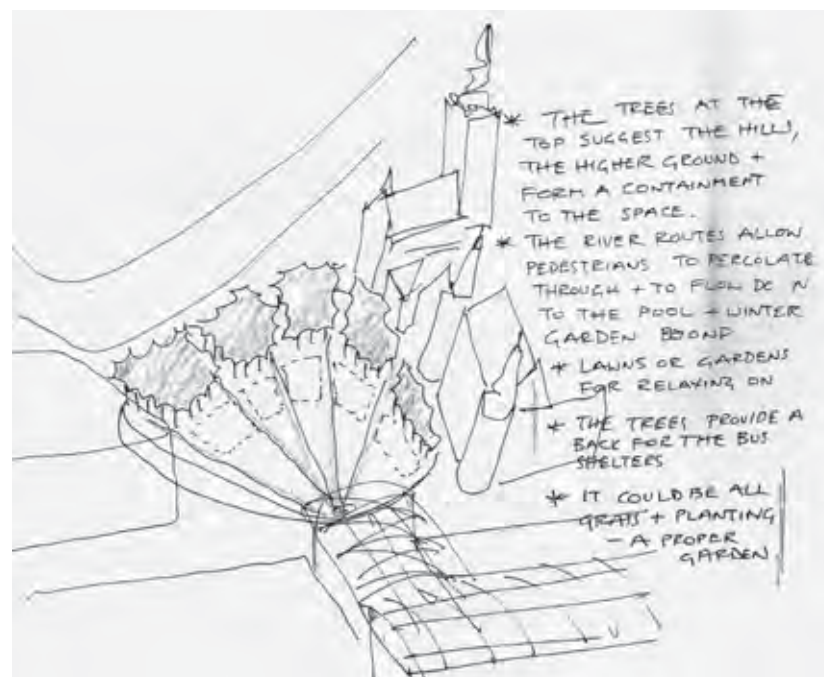 * THE TREES AT THE
TOP SUGGEST THE HILLS,
THE HIGHER GROUND +
FORM A CONTAINMENT
TO THE SPACE.
* THE RIVER ROUTES ALLOW
PEDESTRIANS TO PERCOLATE
THROUGH + TO FLOW DO N
TO THE POOL + WINTER
GARDEN BEOND
* LAWNS OR GARDENS
FOR RELAXING ON
* THE TREES PROVIDE A
BACK FOR THE BUS
SHELTERS
* IT COULD BE ALL
GRASS + PLANTING
- A PROPER
GARDEN